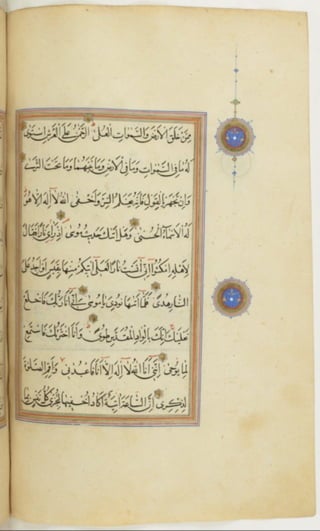 مِمَّنْ خَلَقَ الْأَرْضَ وَالسَّمٰوَاتِ الْعُلَى الرَّحْمٰنُ عَلَى الْعَرْشِ اسْتَوٰى
لَهُ مَا فِي السَّمٰوَاتِ وَمَا فِي الْأَرْضِ وَمَا بَيْنَهُمَا وَمَا تَحْتَ الثَّرٰى
وَإِنْ تَجْهَرْ بِالْقَوْلِ فَإِنَّهُ يَعْلَمُ السِّرَّ وَأَخْفٰى اللّٰهُ لَا إِلٰهَ إِلَّا هُوَ
لَهُ الْأَسْمَاءُ الْحُسْنٰى وَهَلْ أَتٰيكَ حَدِيثُ مُوسٰى إِذْ رَأٰى نَارًا فَقَالَ
لِأَهْلِهِ امْكُثُوا إِنِّي آنَسْتُ نَارًا لَعَلِّي آتِيكُمْ مِنْهَا بِقَبَسٍ أَوْ أَجِدُ عَلَى
النَّارِ هُدًى فَلَمَّا أَتٰيهَا نُودِيَ يَا مُوسٰى إِنِّي أَنَا رَبُّكَ فَاخْلَعْ
نَعْلَيْكَ إِنَّكَ بِالْوَادِ الْمُقَدَّسِ طُوًى وَأَنَا اخْتَرْتُكَ فَاسْتَمِعْ
لِمَا يُوحٰى إِنَّنِي أَنَا اللّٰهُ لَا إِلٰهَ إِلَّا أَنَا فَاعْبُدْنِي وَأَقِمِ الصَّلٰوةَ
لِذِكْرِي إِنَّ السَّاعَةَ آتِيَةٌ أَكَادُ أُخْفِيهَا لِتُجْزٰى كُلُّ نَفْسٍ بِمَا